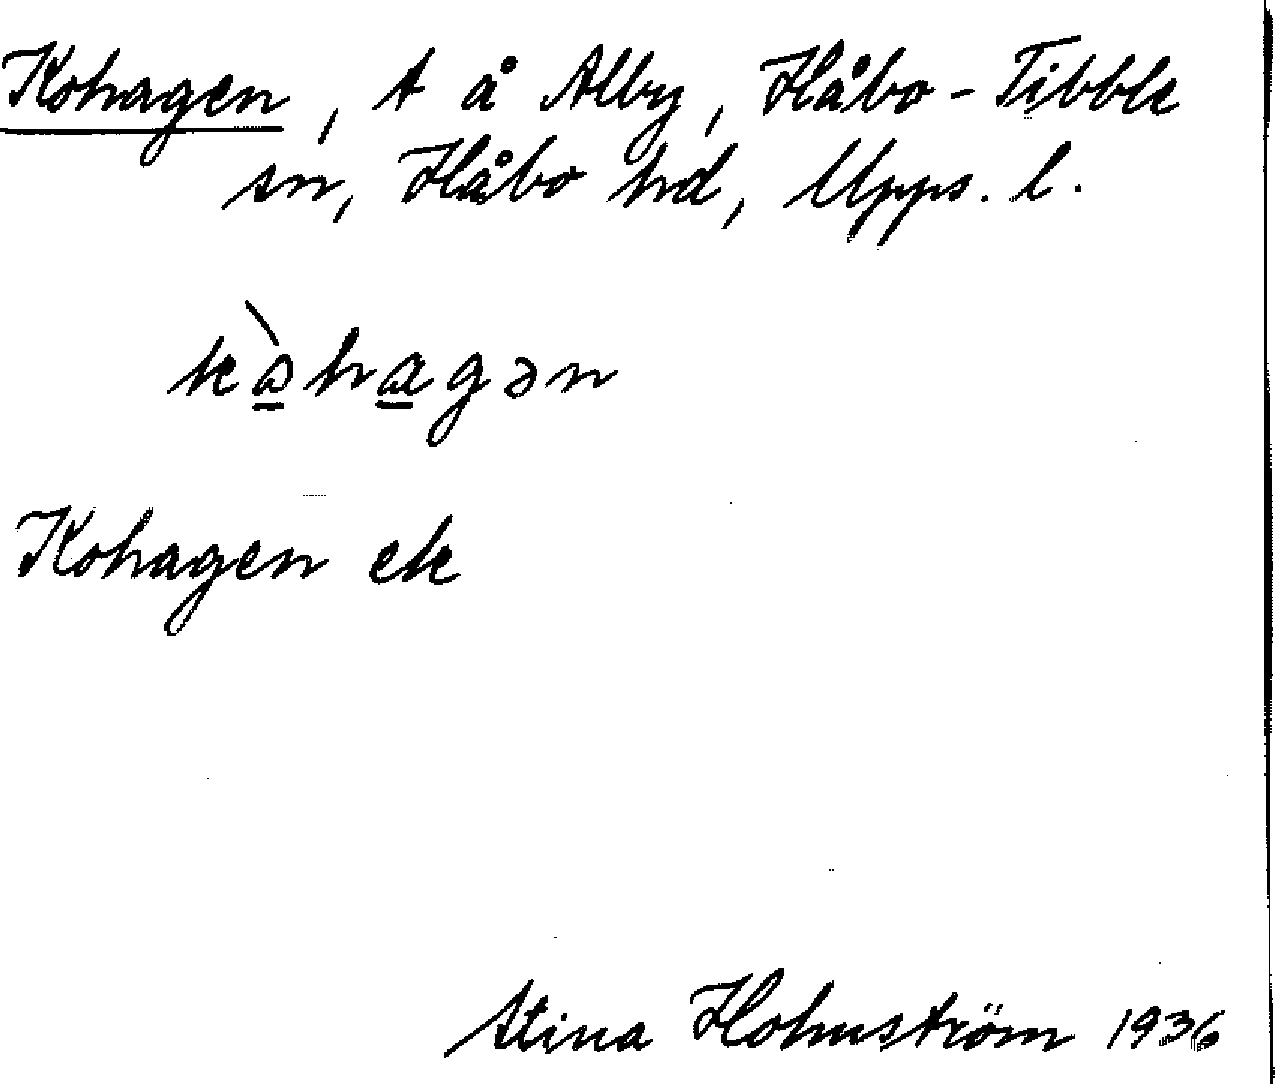 Kohagen, t å Alby, Håbo-Tibble
sn, Håbo hd, Upps. l.
kòhagən
Kohagen ek
Stina Holmström 1936